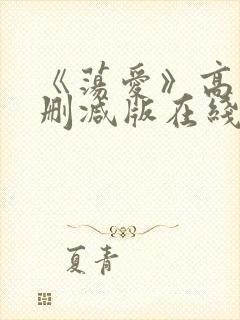 《荡爱》高
删减版在线
夏青